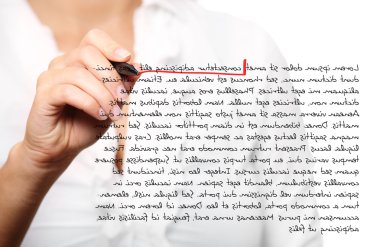 Lorem ipsum dolor sit amet consectetur adipiscing elit tinci-
dunt dictum nunc, sed rhoncus est vehicula eu. Etiam
aliquam mi eget ultrices. Phasellus augue, iaculis vitae
dictum non, ultricies eget nulla. Nam lobortis dapibus mattis
Aenean viverra massa sit amet justo sagittis non elementum dui
mattis. Donec bibendum et in diam porttitor iaculis. Sed rutrum
magna sagittis egestas ac semper tortor commodo. Sed
ligula lectus. Praesent rutrum commodo erat nec gravida. Fusce
tempus varius dui, eu porta turpis convallis ut. Suspendisse posuere
quam sed neque iaculis cursus. Integer leo nisi, tincidunt sed
convallis vestibulum, blandit eget sapien. Nam iaculis orci in
dictum porttitor. Sed id ligula nisl,
tum a commodo porta, lobortis et leo. Donec id lorem orci. Nam
accumsan mi purus. Maecenas urna erat, feugiat id facilisis vitae
adipiscing ut felis